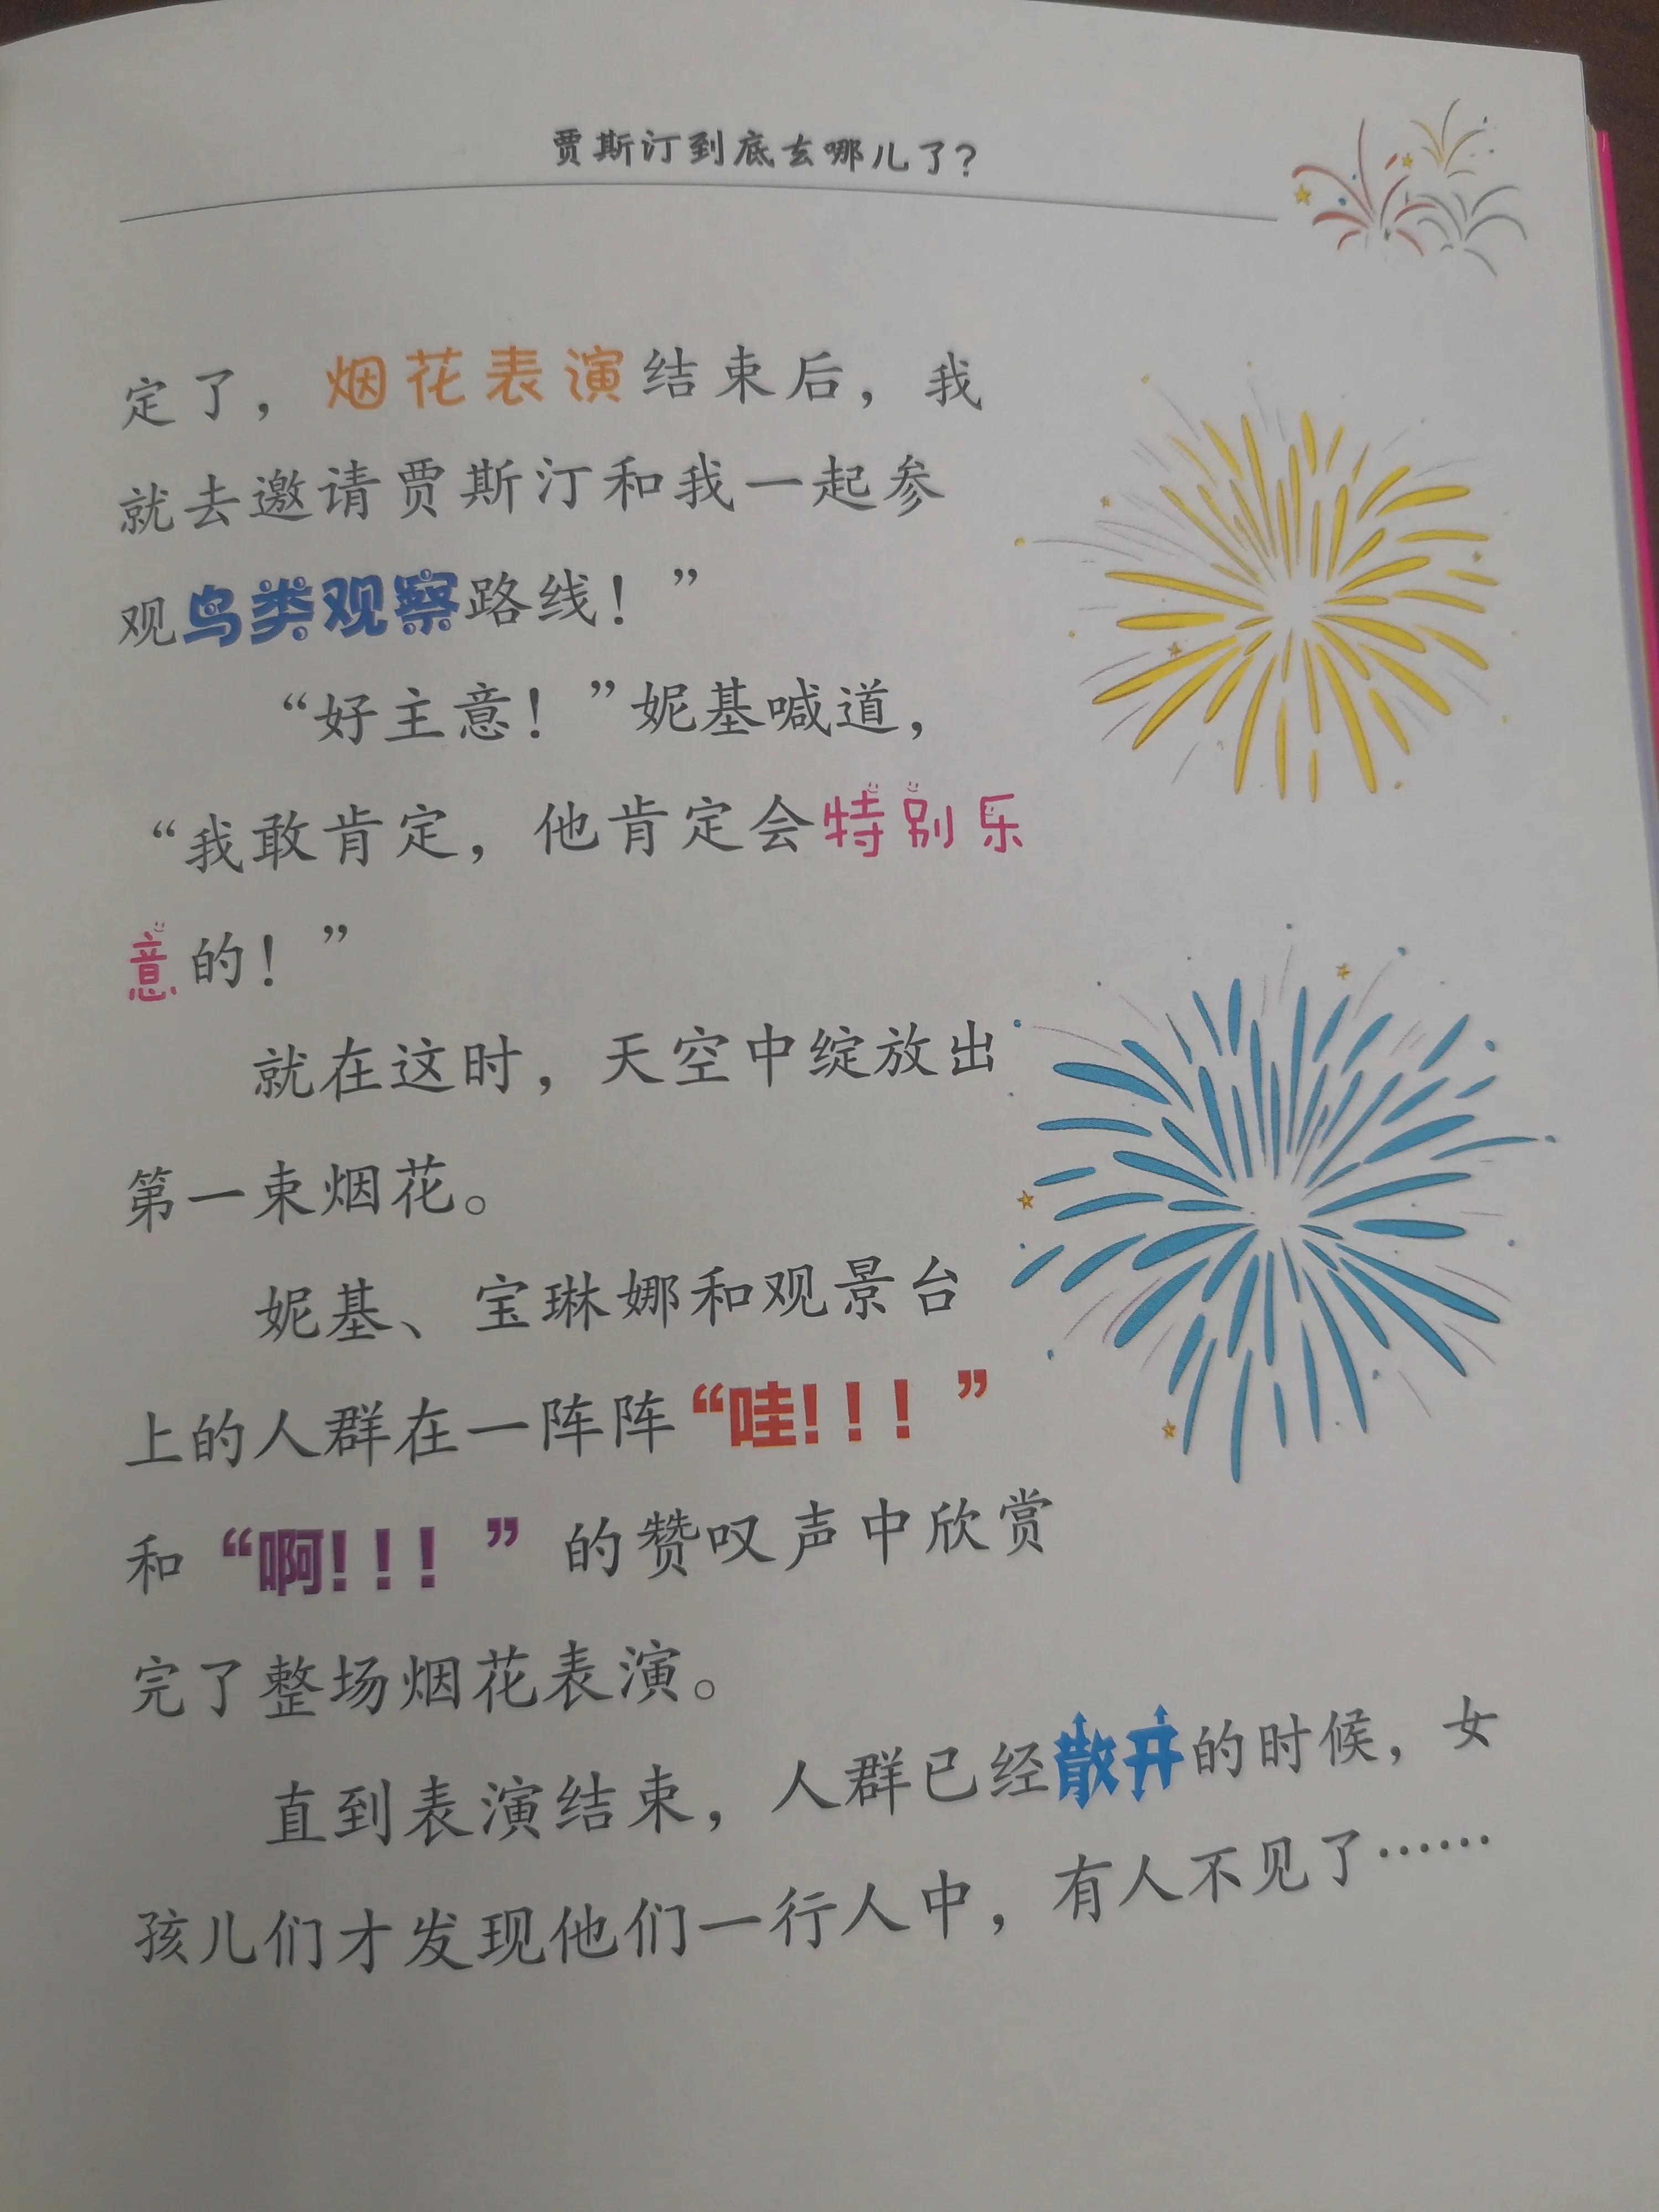 贾斯汀到底去哪儿了?
定了，烟花表演结束后，我
就去邀请贾斯汀和我一起参
观鸟类观察路线！”
“好主意！”妮基喊道，
“我敢肯定，他肯定会特别乐
意的！”
就在这时，天空中绽放出
第一束烟花。
妮基、宝琳娜和观景台
上的人群在一阵阵“哇!!!”
和“啊!!!”的赞叹声中欣赏
完了整场烟花表演。
直到表演结束，人群已经散开的时候，女
孩儿们才发现他们一行人中，有人不见了……